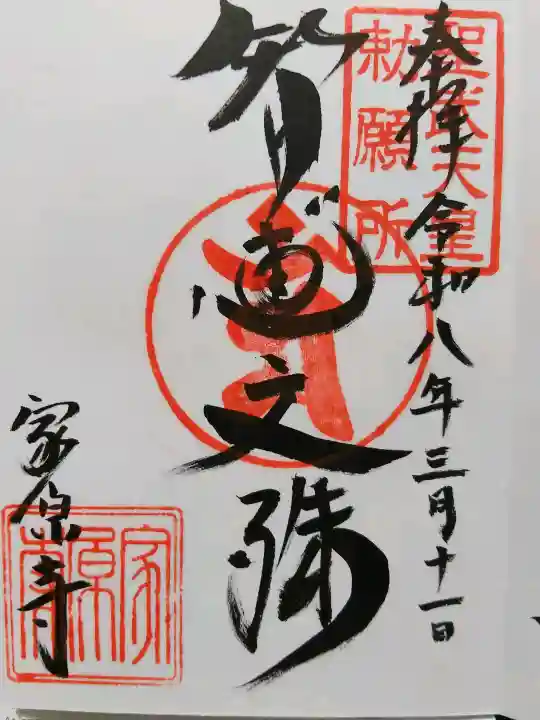 奉拝
令和八年三月十一日
聖武天皇
勅願所
智恵文殊
家原寺
家原寺